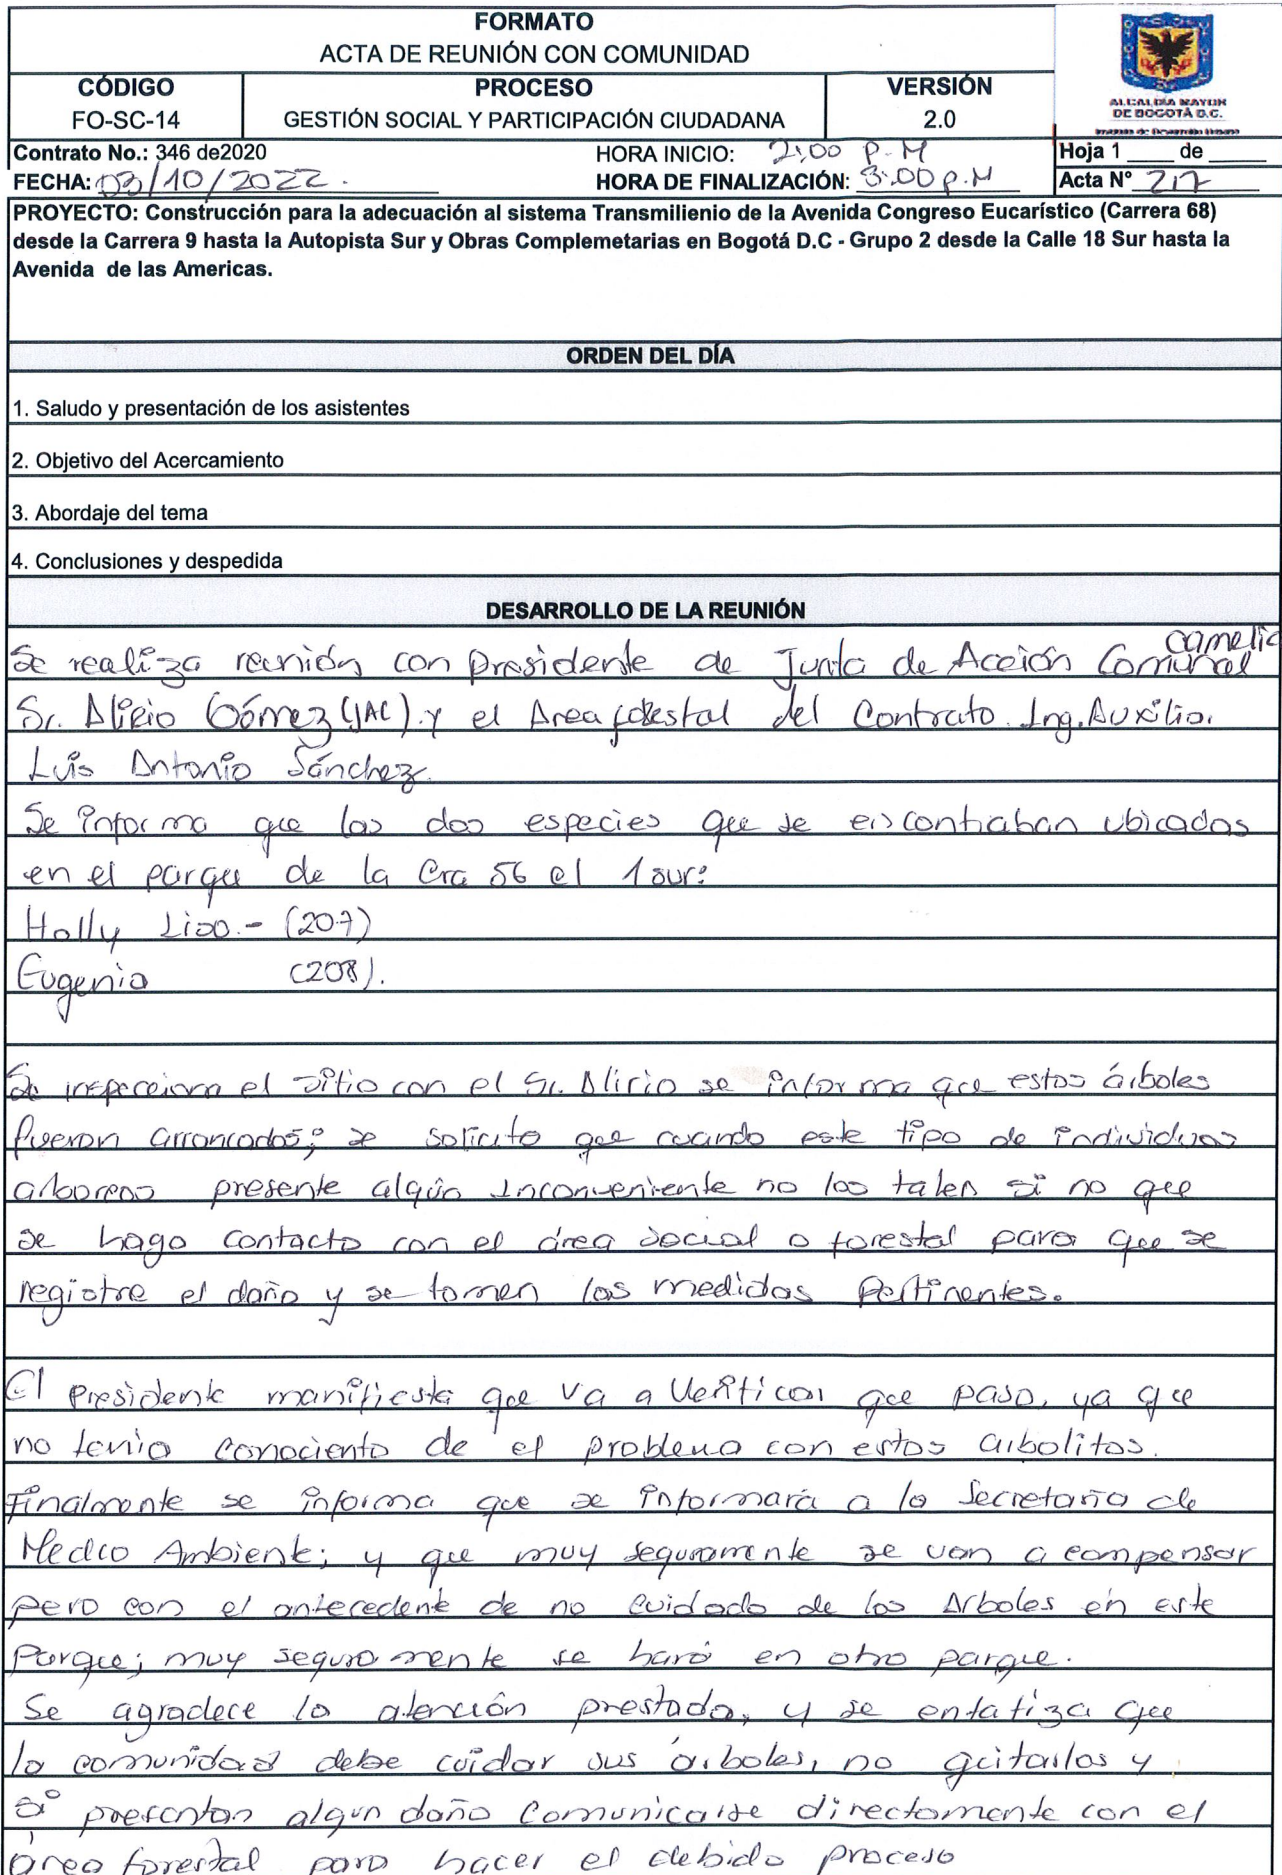 FORMATO
ACTA DE REUNIÓN CON COMUNIDAD
CÓDIGO
FO-SC-14
PROCESO
GESTIÓN SOCIAL Y PARTICIPACIÓN CIUDADANA
VERSIÓN
2.0
ALCALDÍA MAYOR
DE BOGOTÁ D.C.
Instituto de Desarrollo Urbano
Contrato No.: 346 de2020
HORA INICIO: 2:00 P.M
Hoja 1 ____ de ____
FECHA: 03/10/2022.
HORA DE FINALIZACIÓN: 3:00 p.M
Acta N° 217
PROYECTO: Construcción para la adecuación al sistema Transmilenio de la Avenida Congreso Eucarístico (Carrera 68)
desde la Carrera 9 hasta la Autopista Sur y Obras Complemetarias en Bogotá D.C - Grupo 2 desde la Calle 18 Sur hasta la
Avenida de las Americas.
ORDEN DEL DÍA
1. Saludo y presentación de los asistentes
2. Objetivo del Acercamiento
3. Abordaje del tema
4. Conclusiones y despedida
DESARROLLO DE LA REUNIÓN
Se realiza reunión con Presidente de Junta de Acción Comunal Camelia
Sr. Alirio Gómez (JAC). y el Area forestal del Contrato. Ing. Auxilia.
Luis Antonio Sánchez.
Se informa que las dos especies que se encontraban ubicadas
en el parque de la Cra 56 el 1 sur:
Holly Liso.- (207)
Eugenia (208).
Se inspecciona el sitio con el Sr. Alirio se informa que estos árboles
fueron arrancados; se solicito que cuando este tipo de individuos
arboreos presente algún inconveniente no los talen si no que
se haga contacto con el área social o forestal para que se
registre el daño y se tomen las medidas pertinentes.
El presidente manifiesta que va a verificar que paso, ya que
no tenia conociento de el problema con estos arbolitos.
Finalmente se informa que se informará a la Secretaria de
Medio Ambiente; y que muy seguramente se van a compensar
pero con el antecedente de no cuidado de los Arboles en este
Parque; muy seguramente se hará en otro parque.
Se agradece la atención prestada, y se enfatiza que
la comunidad debe cuidar sus arboles, no quitarlos y
si presentan algun daño comunicarse directamente con el
área forestal para hacer el debido proceso